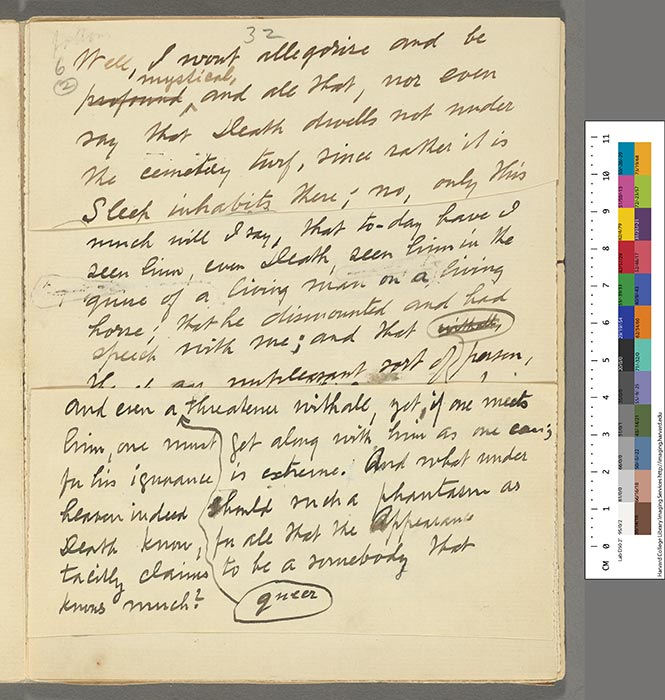 32
6
2
Well, I wont allegorise and be
mystical,
profound, and all that, nor even
say that Death dwells not under
the cemetery turf, since rather it is
Sleep inhabits there; no, only this
much will I say, that to-day have I
seen him, even Death, seen him in the
guise of a living man on a living
horse; that he dismounted and had
speech with me; and that withall
unpleasant sort of person,
and even a threatener withall, yet, if one meets
him, one must get along with him as one can;
for his ignorance is extreme. And what under
heaven indeed should such a phantasm as
Death know, for all that the Appearance
tacitly claims to be a somebody that
knows much?
queer
CM 0 1 2 3 4 5 6 7 8 9 10 11
Harvard College Library Imaging Services